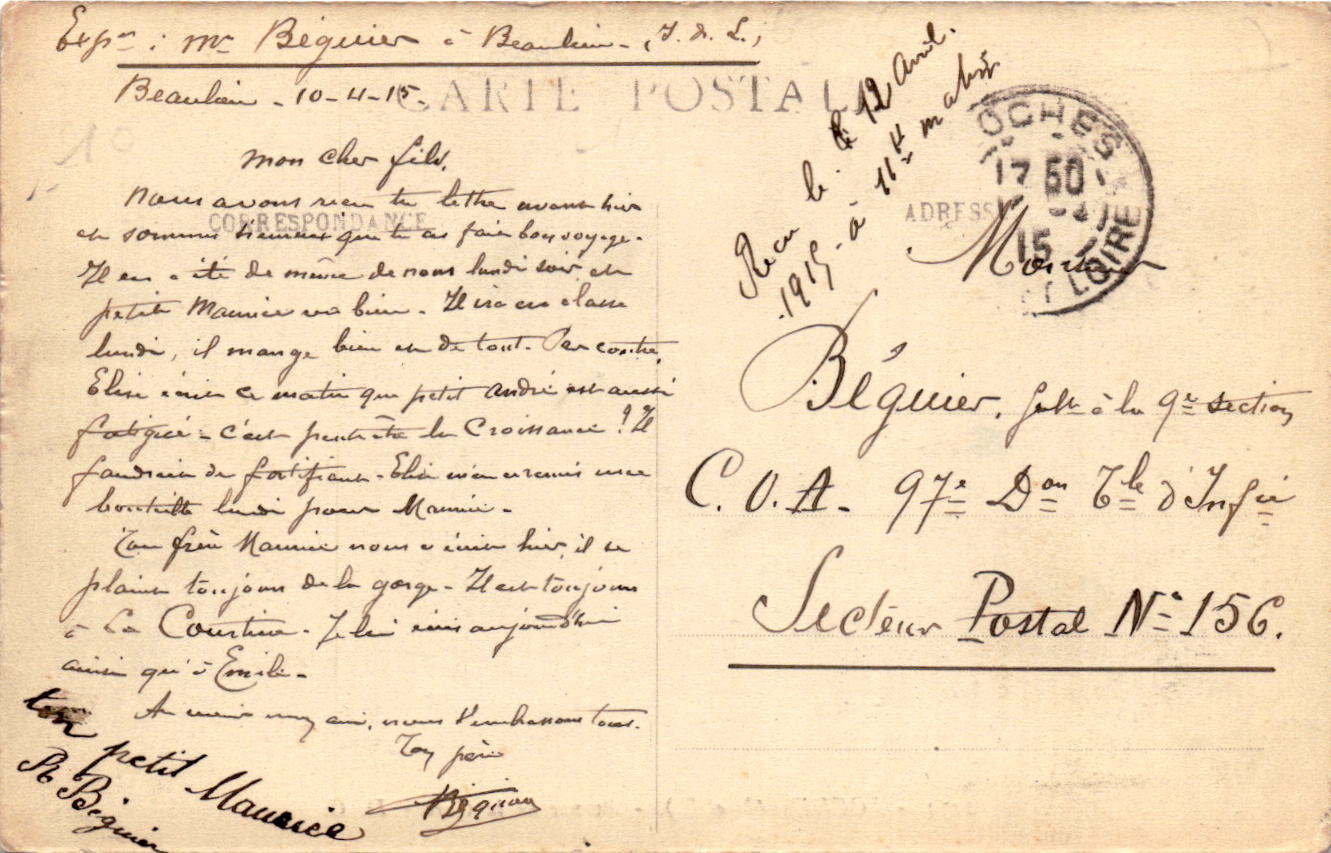 Expr : Mr Béguier à Beaulieu - (I. & L.)
CARTE POSTALE
Beaulieu - 10-4-15 -
Mon cher fils,
Nous avons reçu ta lettre avant hier
CORRESPONDANCE
et sommes heureux que tu as fait bon voyage -
Il en a été de même de nous lundi soir, et
petit Maurice va bien - Il ira en classe
lundi, il mange bien et de tout. Par contre,
Elise écrit ce matin que petit André est aussi
fatigué - c'est peut être la Croissance ? Il
faudrait du fortifiant - Elise m'en a remis une
bouteille lundi pour Maurice -
Ton frère Maurice nous a écrit hier, il se
plaint toujours de la gorge - Il est toujours
à La Courtine - Je lui écris aujourd'hui
ainsi qu'à Emile -
nous t'embrassons tous.
Ton père
Béguier
ton petit Maurice
Béguier
Reçu le 12 Avril.
1915 - à 11 H matin
ADRESSE
OCHES
17 50
15
ET LOIRE
Monsieur
Béguier, à la 9e section
C.O.A - 97e Don Tle d'Infie
Secteur Postal No 156.